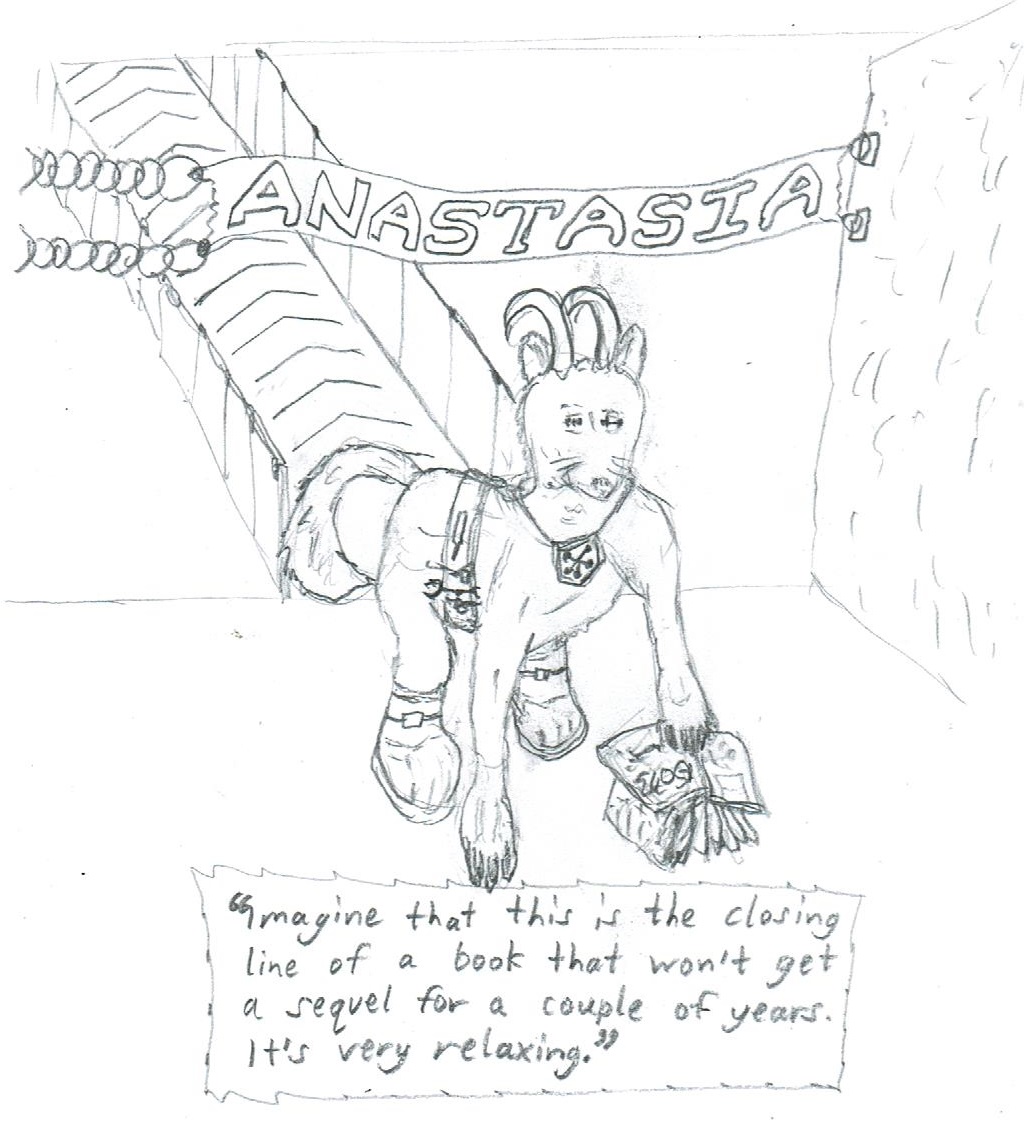 ANASTASIA
“Imagine that this is the closing
line of a book that won't get
a sequel for a couple of years.
It's very relaxing.”